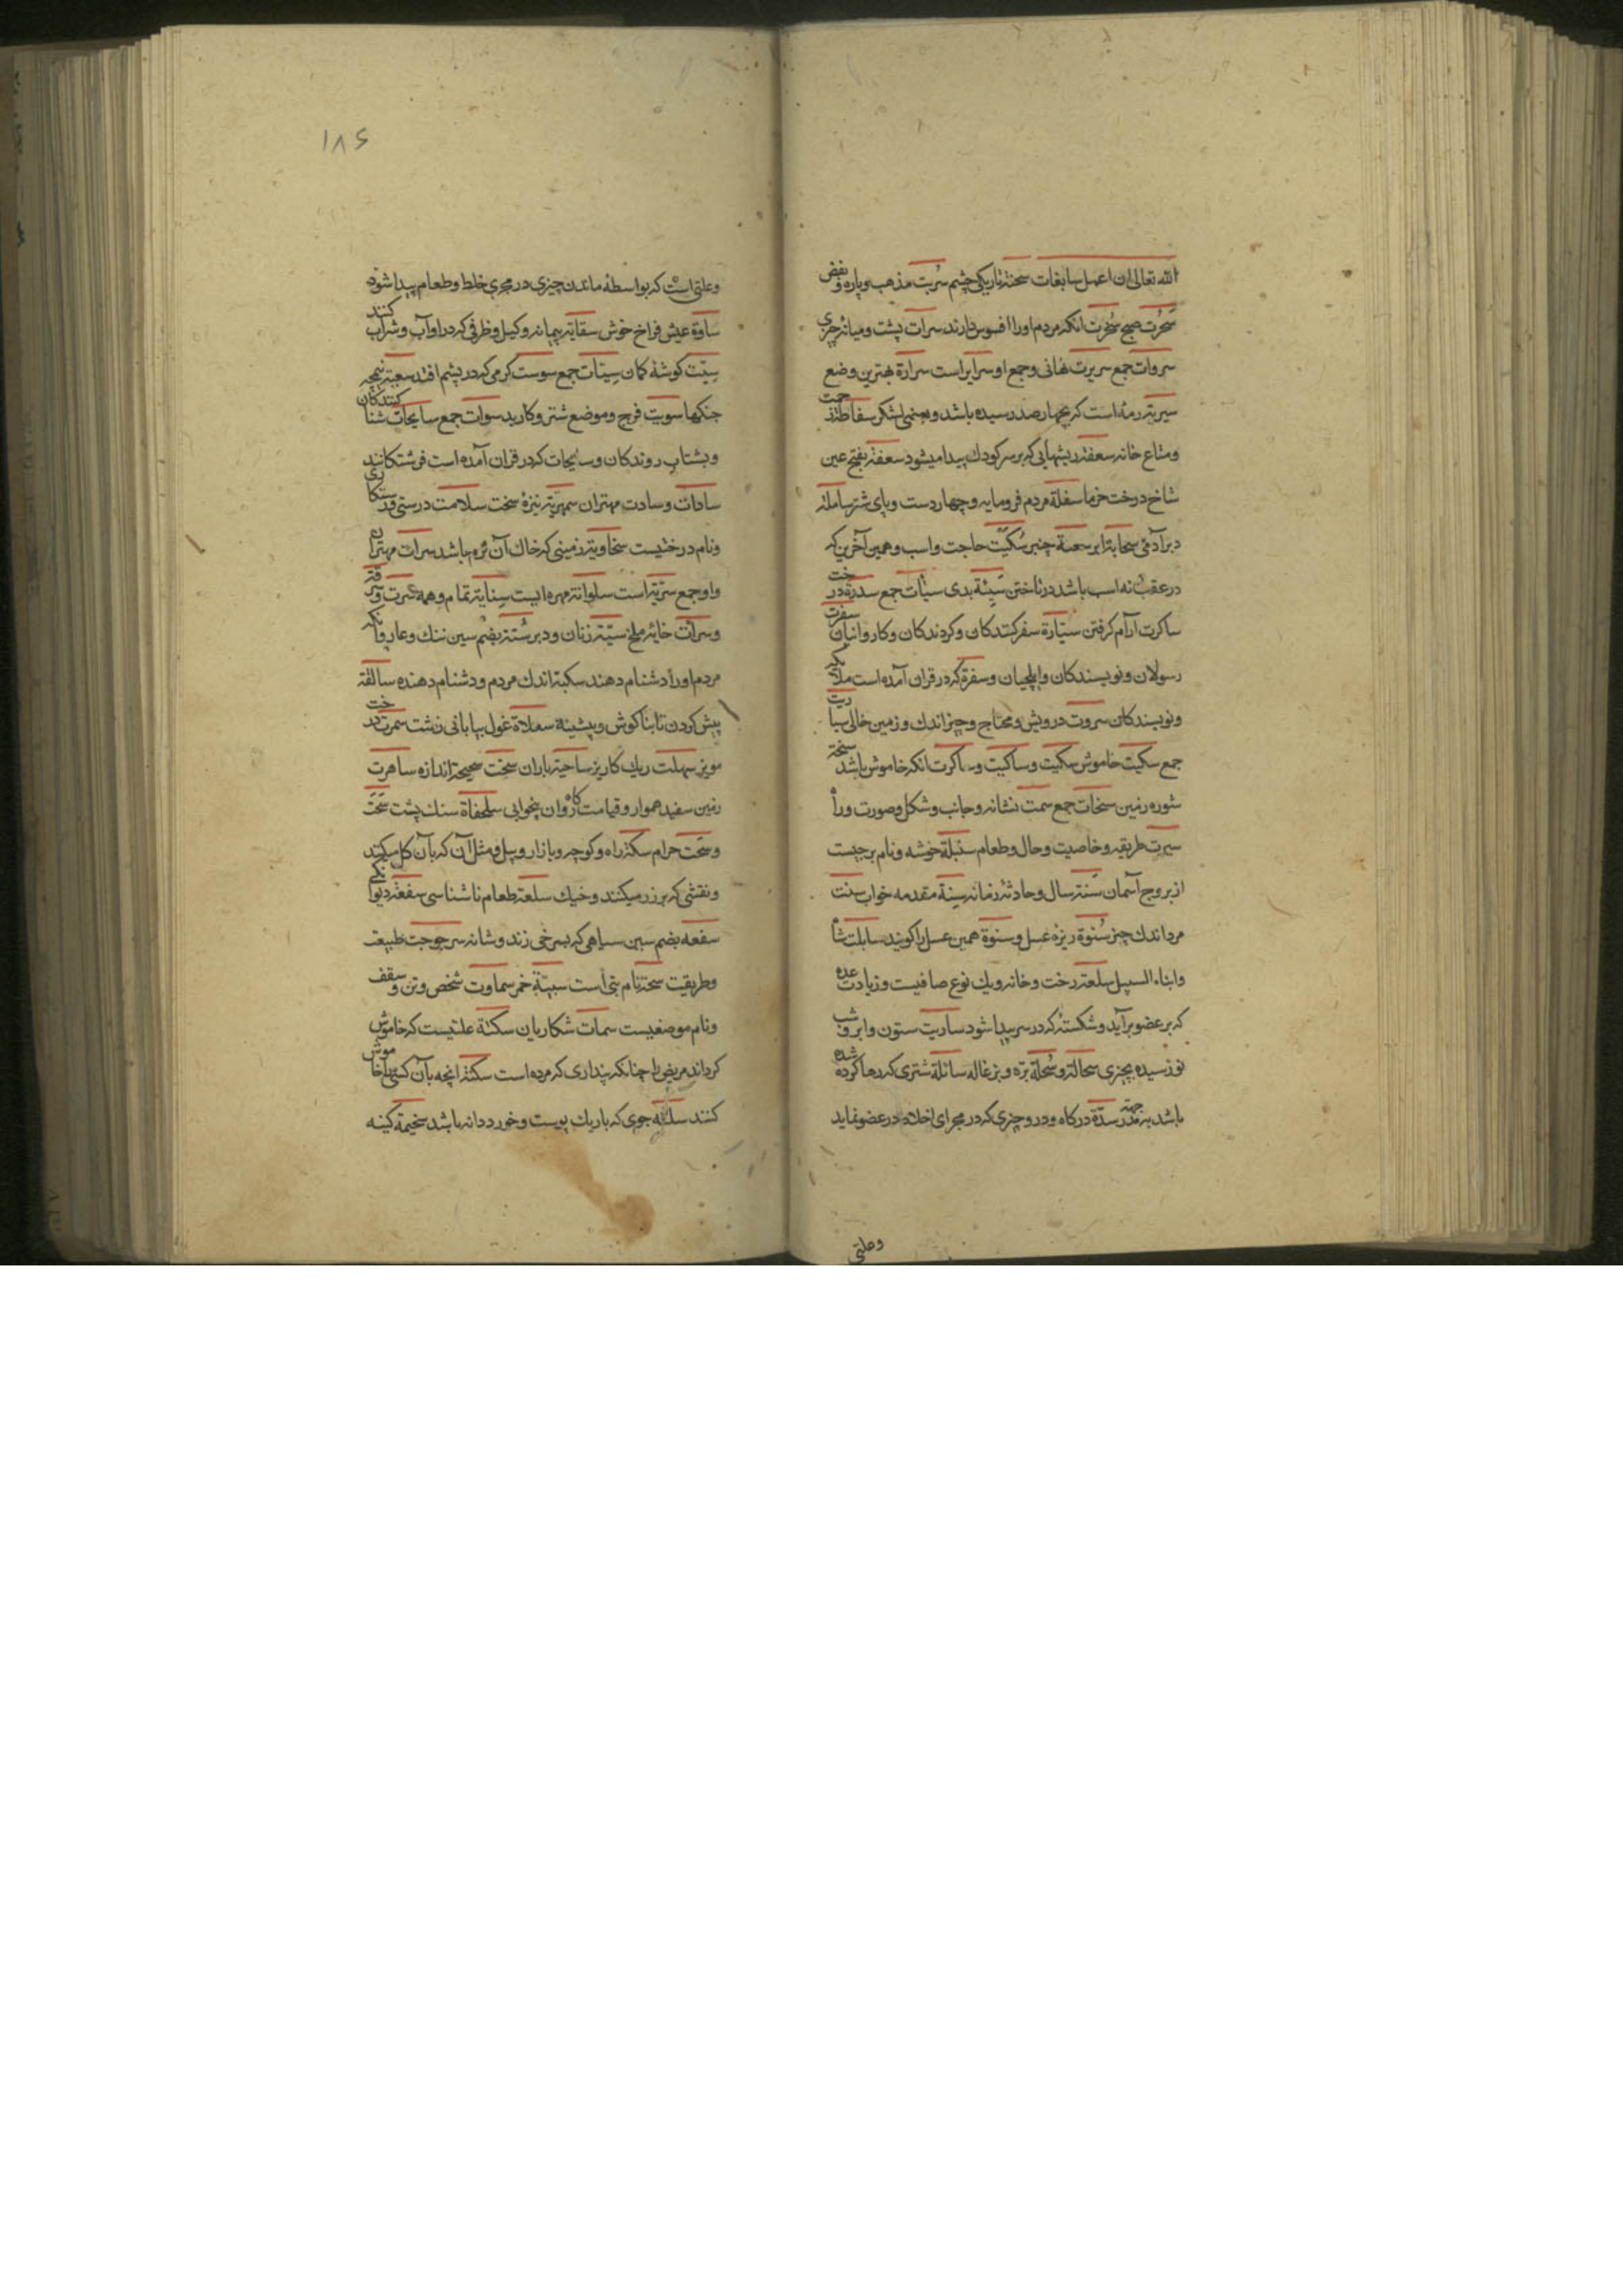 الله تعالی ان اعمل سابغات سخنة تاریکی چشم سربت مذهب و پاره و بعض
سحرت صبح سخرت انکه مردم او را افسوس دارند سرات پشت و میانه چیزی
سروات جمع سریرت نهانی و جمع او سرایر است سرارة بهترین وضع
سریة رمه است که بچهار صد رسیده باشد و بعضی لشکر سفاطة رخت
و متاع خانه سعفة ریشهایی که بر سر کودک پیدا میشود سعفة بفتح عین
شاخ درخت خرما سفلة مردم فرومایه و چهار دست و پای شتر ساملة
دبر آدمی سحابة ابر سعنة چنبر سکیت حاجت و اسب و همین آخرین که
در عقب نه اسب باشد در تاختن سیئة بدی سیئات جمع سدرة درخت
ساکرت آرام گرفتن سیارة سفر کنندکان و کردندکان و کاروانیان سفرت
رسولان و نویسندکان و ایلچیان و سفرة که در قران آمده است ملائکه
و نویسندکان سروت درویش و محتاج و چیز اندک و زمین خالی سباریت
جمع سکیت خاموش سکیت و ساکیت و ساکرت انکه خاموش باشد سبخة
شوره زمین سبخات جمع سمت نشانه و جانب و شکل و صورت و راه
سیرت طریقه و خاصیت و حال و طعام سنبلة خوشه و نام برجیست
از بروج آسمان سنة سال و حادثه زمانه سنة مقدمه خواب سنت
مرد اندک چیز سنوة ریزه عسل و سنوة همین عسل را کویند سابلت شاه
و ابناء السبیل سلعة رخت و خانه و یک نوع صافیست و زیادت غده
که بر عضو برآید و شکسته که در سر پیدا شود ساریت ستون و ابر و شب
نو رسیده بچیزی سحالة و سخلة بره و بزغاله سائلة شتری که رها کرده شده
باشد بجهة نذر سدة درکاه و در و چیزی که در مجرای اخلاط در عضو نماید
وعلتی
۱۸۶
و علتی است که بواسطه ماندن چیزی در مجری خلط و طعام پیدا شود
ساوة عیش فراخ خوش سقایة پیمانه و کیل و ظرفی که در او آب و شراب کنند
سیت کوشه کمان سیتات جمع سوست کرمی که در پشم افتد سعبة نیمچه
جنکها سویت فرج و موضع شتر و کارید سوات جمع سابحات شنا کنندکان
و بشتاب روندکان و سابحات که در قران آمده است فرشتکانند
سادات و سادت مهتران سمهریة نیزه سخت سلامت درستی و رستکاری
و نام درختیست سخاویة زمینی که خاک آن نرم باشد سرات مهتران
و او جمع سریة است سلوانة مهره ایست سنایة تمام و همه سرت و سرقة
و سرأت خایه ملخ سیة زنان و دبر سبة بضم سین ننک و عار و آنکه
مردم او را دشنام دهند سکبة اندک مردم و دشنام دهنده سالفة
پیش کردن تا بناکوش و پیشینه سعلاة غول بیابانی زشت سمرت درخت
مویز سهلت ریک کاریز ساحیة باران سخت سحیحة اندازه ساهرت
زمین سفید هموار و قیامت کاروان بیخوابی سلحفاة سنک پشت سحت
و سحت حرام سکة راه و کوچه و بازار و بیل و مثل آن که بآن کل میکنند
و نقشی که بر زر میکنند و خیک سلعة طعام ناشناسی سفعة دیوانکی
سفعه بضم سین سیاهی که بسرخی زند و شانه سرجوجت طبیعت
و طریقت سحة نام بتی است سبیئة خمر سماوت شخص و تن و سقف
و نام موضعیست سمات شکاریان سکتة علتیست که خاموش
کرداند مریض را چنانکه پنداری که مرده است سکتة انچه بآن کسی را خاموش
کنند سلته جوی که باریک پوست و خورد دانه باشد سخیمة کینه